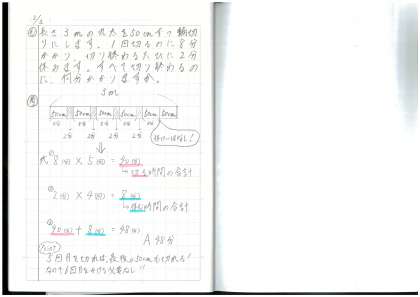 長さ3mの丸太を50cmずつ輪切
りにします。1回切るのに8分
かかり、切り終わるたびに2分
休みます。すべて切り終わるの
に、何分かかりますか。
3m
50cm 50cm 50cm 50cm 50cm 50cm
8分 8分 8分 8分 8分
2分 2分 2分 2分
休けいはなし!
式 ① 8(分) × 5(回) = 40(分)
→切る時間の合計
② 2(分) × 4(回) = 8(分)
→休む時間の合計
③ 40(分) + 8(分) = 48(分)
A 48分
Point
5回目を切れば、最後の50cmも切れる!
なので6回目を切る必要なし!!